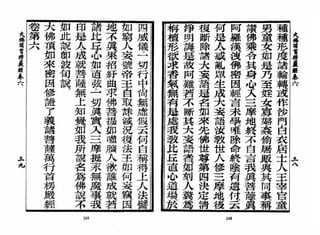 大佛頂首楞嚴經卷六
三八
種種形度諸輪轉或作沙門白衣居士人王宰官童
男童女如是乃至婬女寡婦姦偷屠販與其同事稱
讚佛乘令其身心入三摩地終不自言我真菩薩真
阿羅漢洩佛密因輕言未學唯除命終陰有遺付云
何是人惑亂眾生成大妄語汝教世人修三摩地後
復斷除諸大妄語是名如來先佛世尊第四決定清
淨明誨是故阿難若不斷其大妄語者如刻人糞為
栴檀形欲求香氣無有是處我教比丘直心道場於
四威儀一切行中尚無虛假云何自稱得上人法譬
如窮人妄號帝王自取誅滅況復法王如何妄竊因
地不真果招紆曲求佛菩提如噬臍人欲誰成就若
諸比丘心如直絃一切真實入三摩提永無魔事我
印是人成就菩薩無上知覺如我所說名為佛說不
如此說即波旬說
大佛頂如來密因修證了義諸菩薩萬行首楞嚴經
卷第六
大佛頂首楞嚴經卷六
三九